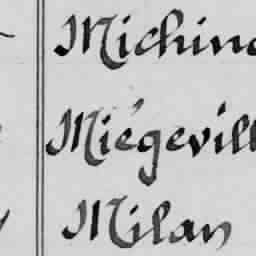 Michino
Miégevill
Milan